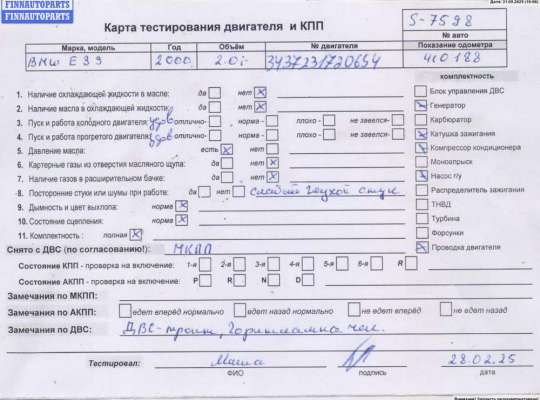 FINNAUTOPARTS
FINNAUTOPARTS
Карта тестирования двигателя и КПП
S-7598
№ авто
Марка, модель Год Объём № двигателя Показание одометра
BMW E39 2000 2.0i 410188
комплектность
1. Наличие охлаждающей жидкости в масле: да нет
2. Наличие масла в охлаждающей жидкости: да нет
3. Пуск и работа холодного двигателя: удов отлично- норма - плохо - не завелся-
4. Пуск и работа прогретого двигателя: удов отлично- норма - плохо - не завелся-
5. Давление масла: есть нет
6. Картерные газы из отверстия масляного щупа: да нет
7. Наличие газов в расширительном бачке: да нет
8. Посторонние стуки или шумы при работе: да нет слабый глухой стук
9. Дымность и цвет выхлопа: норма
10. Состояние сцепления: норма
11. Комплектность : полная
Блок управления ДВС
Генератор
Карбюратор
Катушка зажигания
Компрессор кондиционера
Моновпрыск
Насос г/у
Распределитель зажигания
ТНВД
Турбина
Форсунки
Проводка двигателя
Снято с ДВС (по согласованию!): МКПП
Состояние КПП - проверка на включение: 1-я 2-я 3-я 4-я 5-я 6-я P R
Состояние АКПП - проверка на включение: P R N D
Замечания по МКПП:
Замечания по АКПП: едет вперёд нормально едет назад нормально не едет вперёд не едет назад
Замечания по ДВС: ДВС-троит, Горит лампа чек.
Тестировал: Миша 28.02.25
ФИО подпись дата